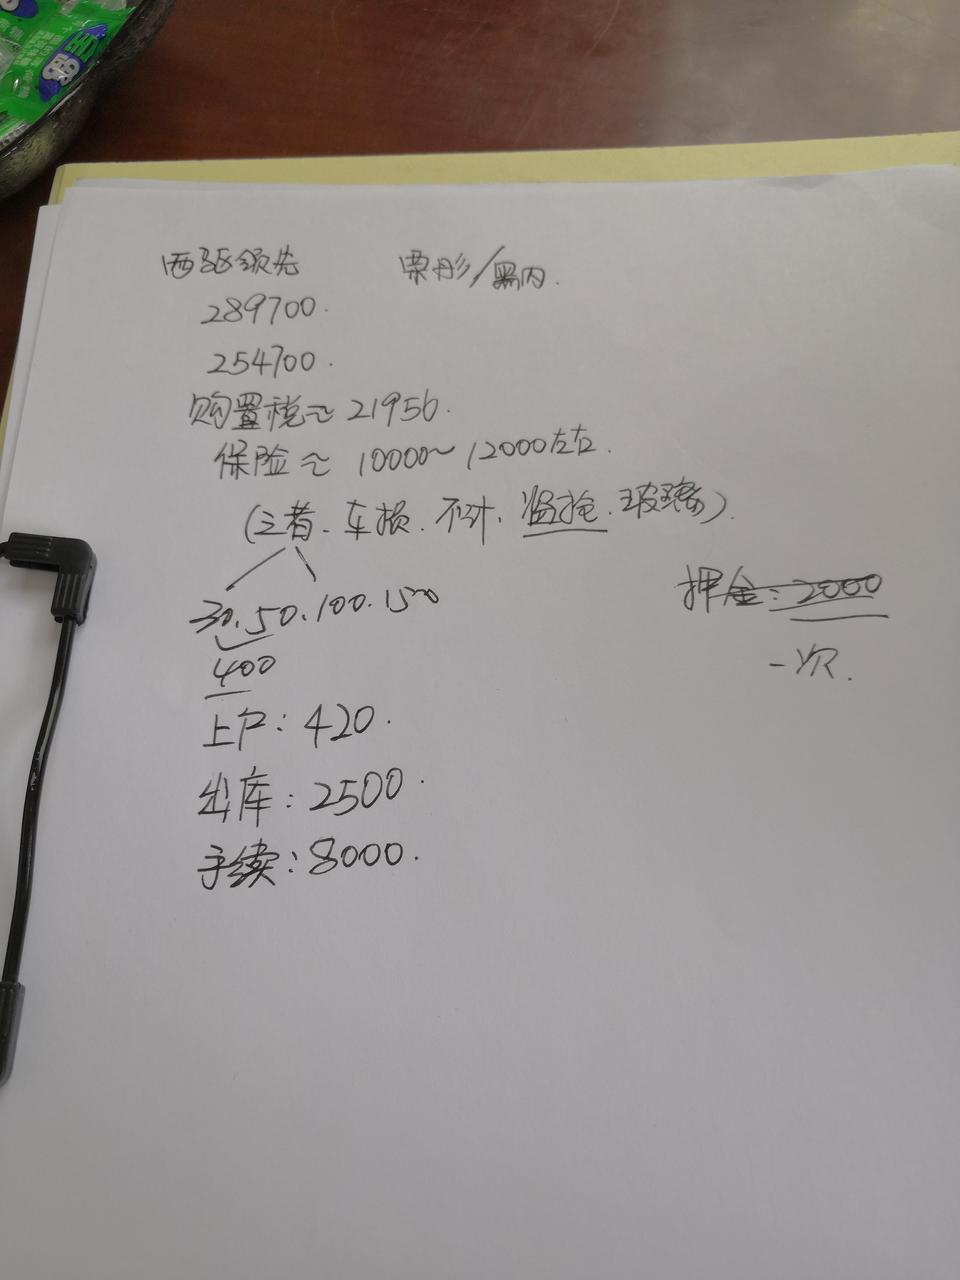 西驱领先 栗彤/黑内.
289700.
254700.
购置税≈21956.
保险≈10000~12000左右.
(三者、车损、不计、盗抢、玻璃)
30.50.100.150
400
押金:2000
一次.
上户:420.
出库:2500.
手续:8000.